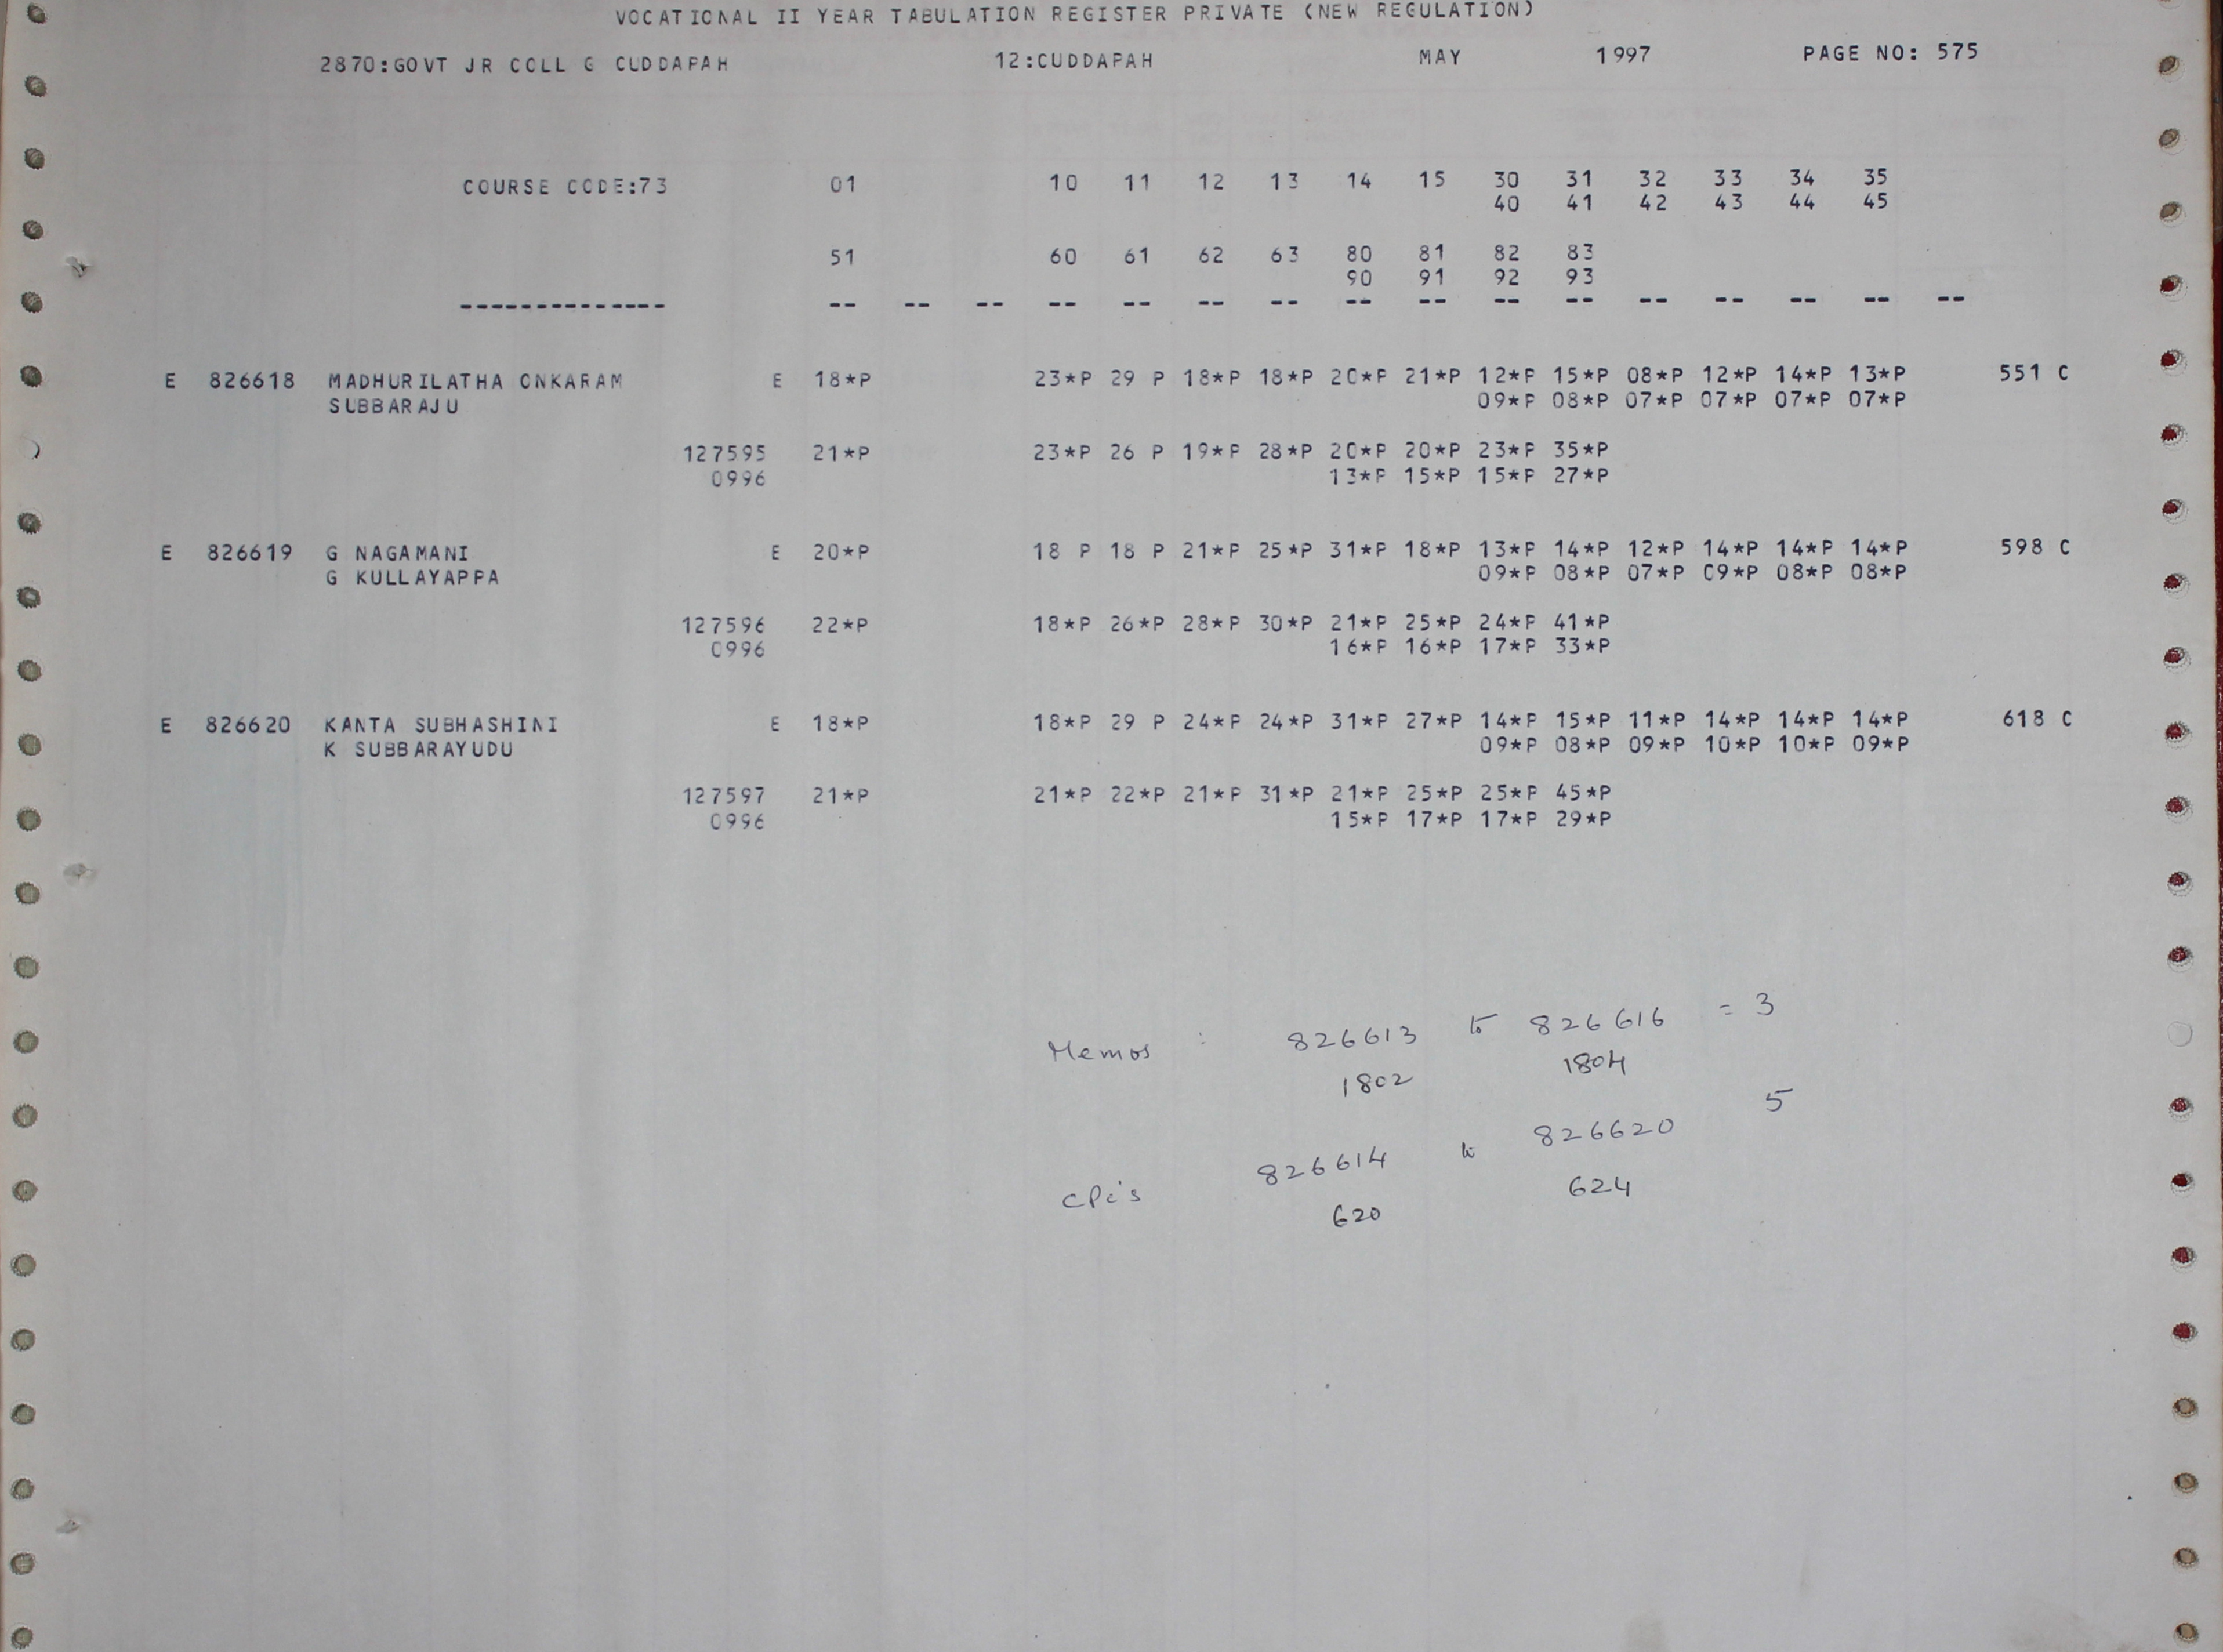 VOCATIONAL II YEAR TABULATION REGISTER PRIVATE (NEW REGULATION)
2870:GOVT JR COLL G CUDDAPAH 12:CUDDAPAH MAY 1997 PAGE NO: 575
COURSE CODE:73 01 10 11 12 13 14 15 30 31 32 33 34 35
40 41 42 43 44 45
51 60 61 62 63 80 81 82 83
90 91 92 93
-------------- -- -- -- -- -- -- -- -- -- -- -- -- -- -- -- --
E 826618 MADHURILATHA ONKARAM E 18*P 23*P 29 P 18*P 18*P 20*P 21*P 12*P 15*P 08*P 12*P 14*P 13*P 551 C
SUBBARAJU 09*P 08*P 07*P 07*P 07*P 07*P
127595 21*P 23*P 26 P 19*P 28*P 20*P 20*P 23*P 35*P
0996 13*P 15*P 15*P 27*P
E 826619 G NAGAMANI E 20*P 18 P 18 P 21*P 25*P 31*P 18*P 13*P 14*P 12*P 14*P 14*P 14*P 598 C
G KULLAYAPPA 09*P 08*P 07*P 09*P 08*P 08*P
127596 22*P 18*P 26*P 28*P 30*P 21*P 25*P 24*P 41*P
0996 16*P 16*P 17*P 33*P
E 826620 KANTA SUBHASHINI E 18*P 18*P 29 P 24*P 24*P 31*P 27*P 14*P 15*P 11*P 14*P 14*P 14*P 618 C
K SUBBARAYUDU 09*P 08*P 09*P 10*P 10*P 09*P
127597 21*P 21*P 22*P 21*P 31*P 21*P 25*P 25*P 45*P
0996 15*P 17*P 17*P 29*P
Memos : 826613 to 826616 = 3
1802 1804
CPC's 826614 to 826620 5
620 624